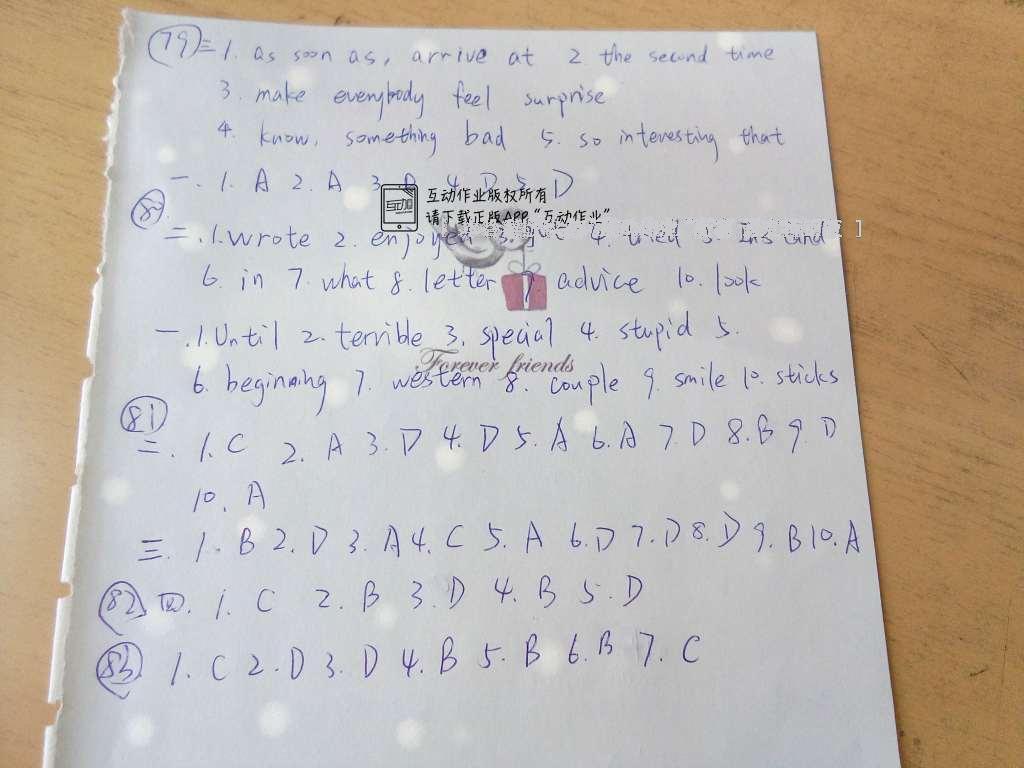 79 三 1. as soon as, arrive at 2 the second time
3. make everybody feel surprise
4. know, something bad 5. so interesting that
一. 1. A 2. A 3. 4. D 5. D
互动作业版权所有
请下载正版APP“互动作业”
80
二. 1. wrote 2. enjoyed 3. 4. tried 5.
6. in 7. what 8. letter 9. advice 10. look
一. 1. Until 2. terrible 3. special 4. stupid 5.
Forever friends
6. beginning 7. western 8. couple 9. smile 10. sticks
81
二. 1. C 2. A 3. D 4. D 5. A 6. A 7. D 8. B 9. D
10. A
三. 1. B 2. D 3. A 4. C 5. A 6. D 7. D 8. D 9. B 10. A
82 四. 1. C 2. B 3. D 4. B 5. D
83 1. C 2. D 3. D 4. B 5. B 6. B 7. C